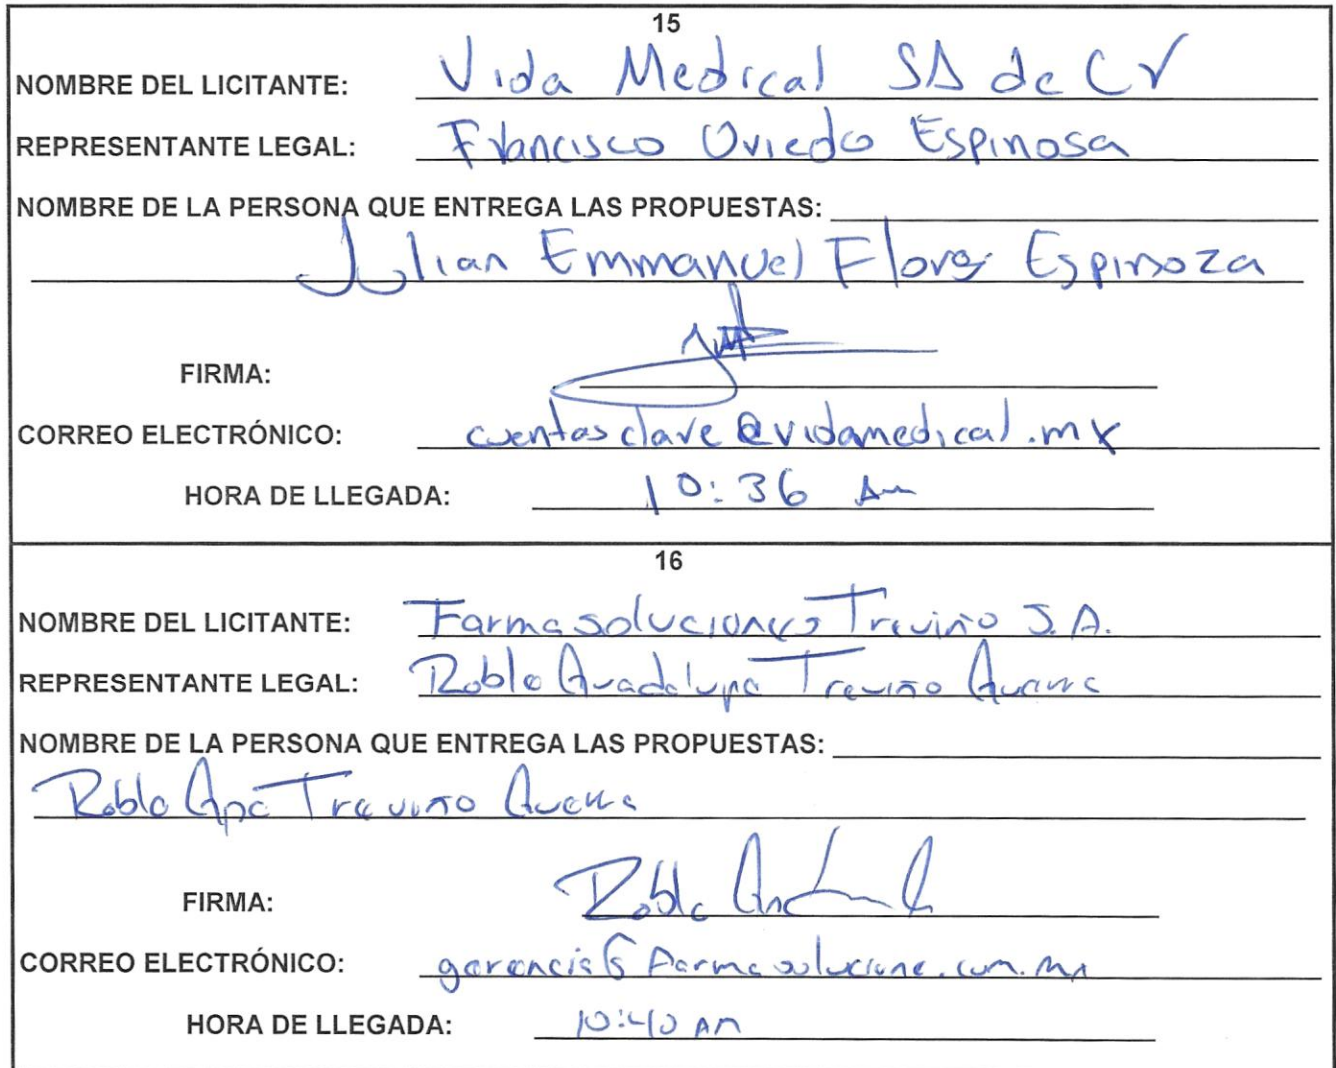 15
NOMBRE DEL LICITANTE: Vida Medical SA de CV
REPRESENTANTE LEGAL: Francisco Oviedo Espinosa
NOMBRE DE LA PERSONA QUE ENTREGA LAS PROPUESTAS:
Julian Emmanuel Flores Espinoza
FIRMA:
CORREO ELECTRÓNICO: cuentasclave@vidamedical.mx
HORA DE LLEGADA: 10:36 Am
16
NOMBRE DEL LICITANTE: Farmasoluciones Treviño S.A.
REPRESENTANTE LEGAL: Roble Guadalupe Treviño Guerra
NOMBRE DE LA PERSONA QUE ENTREGA LAS PROPUESTAS:
Roble Gpe Treviño Guerra
FIRMA: Roble
CORREO ELECTRÓNICO:
HORA DE LLEGADA: 10:40 Am